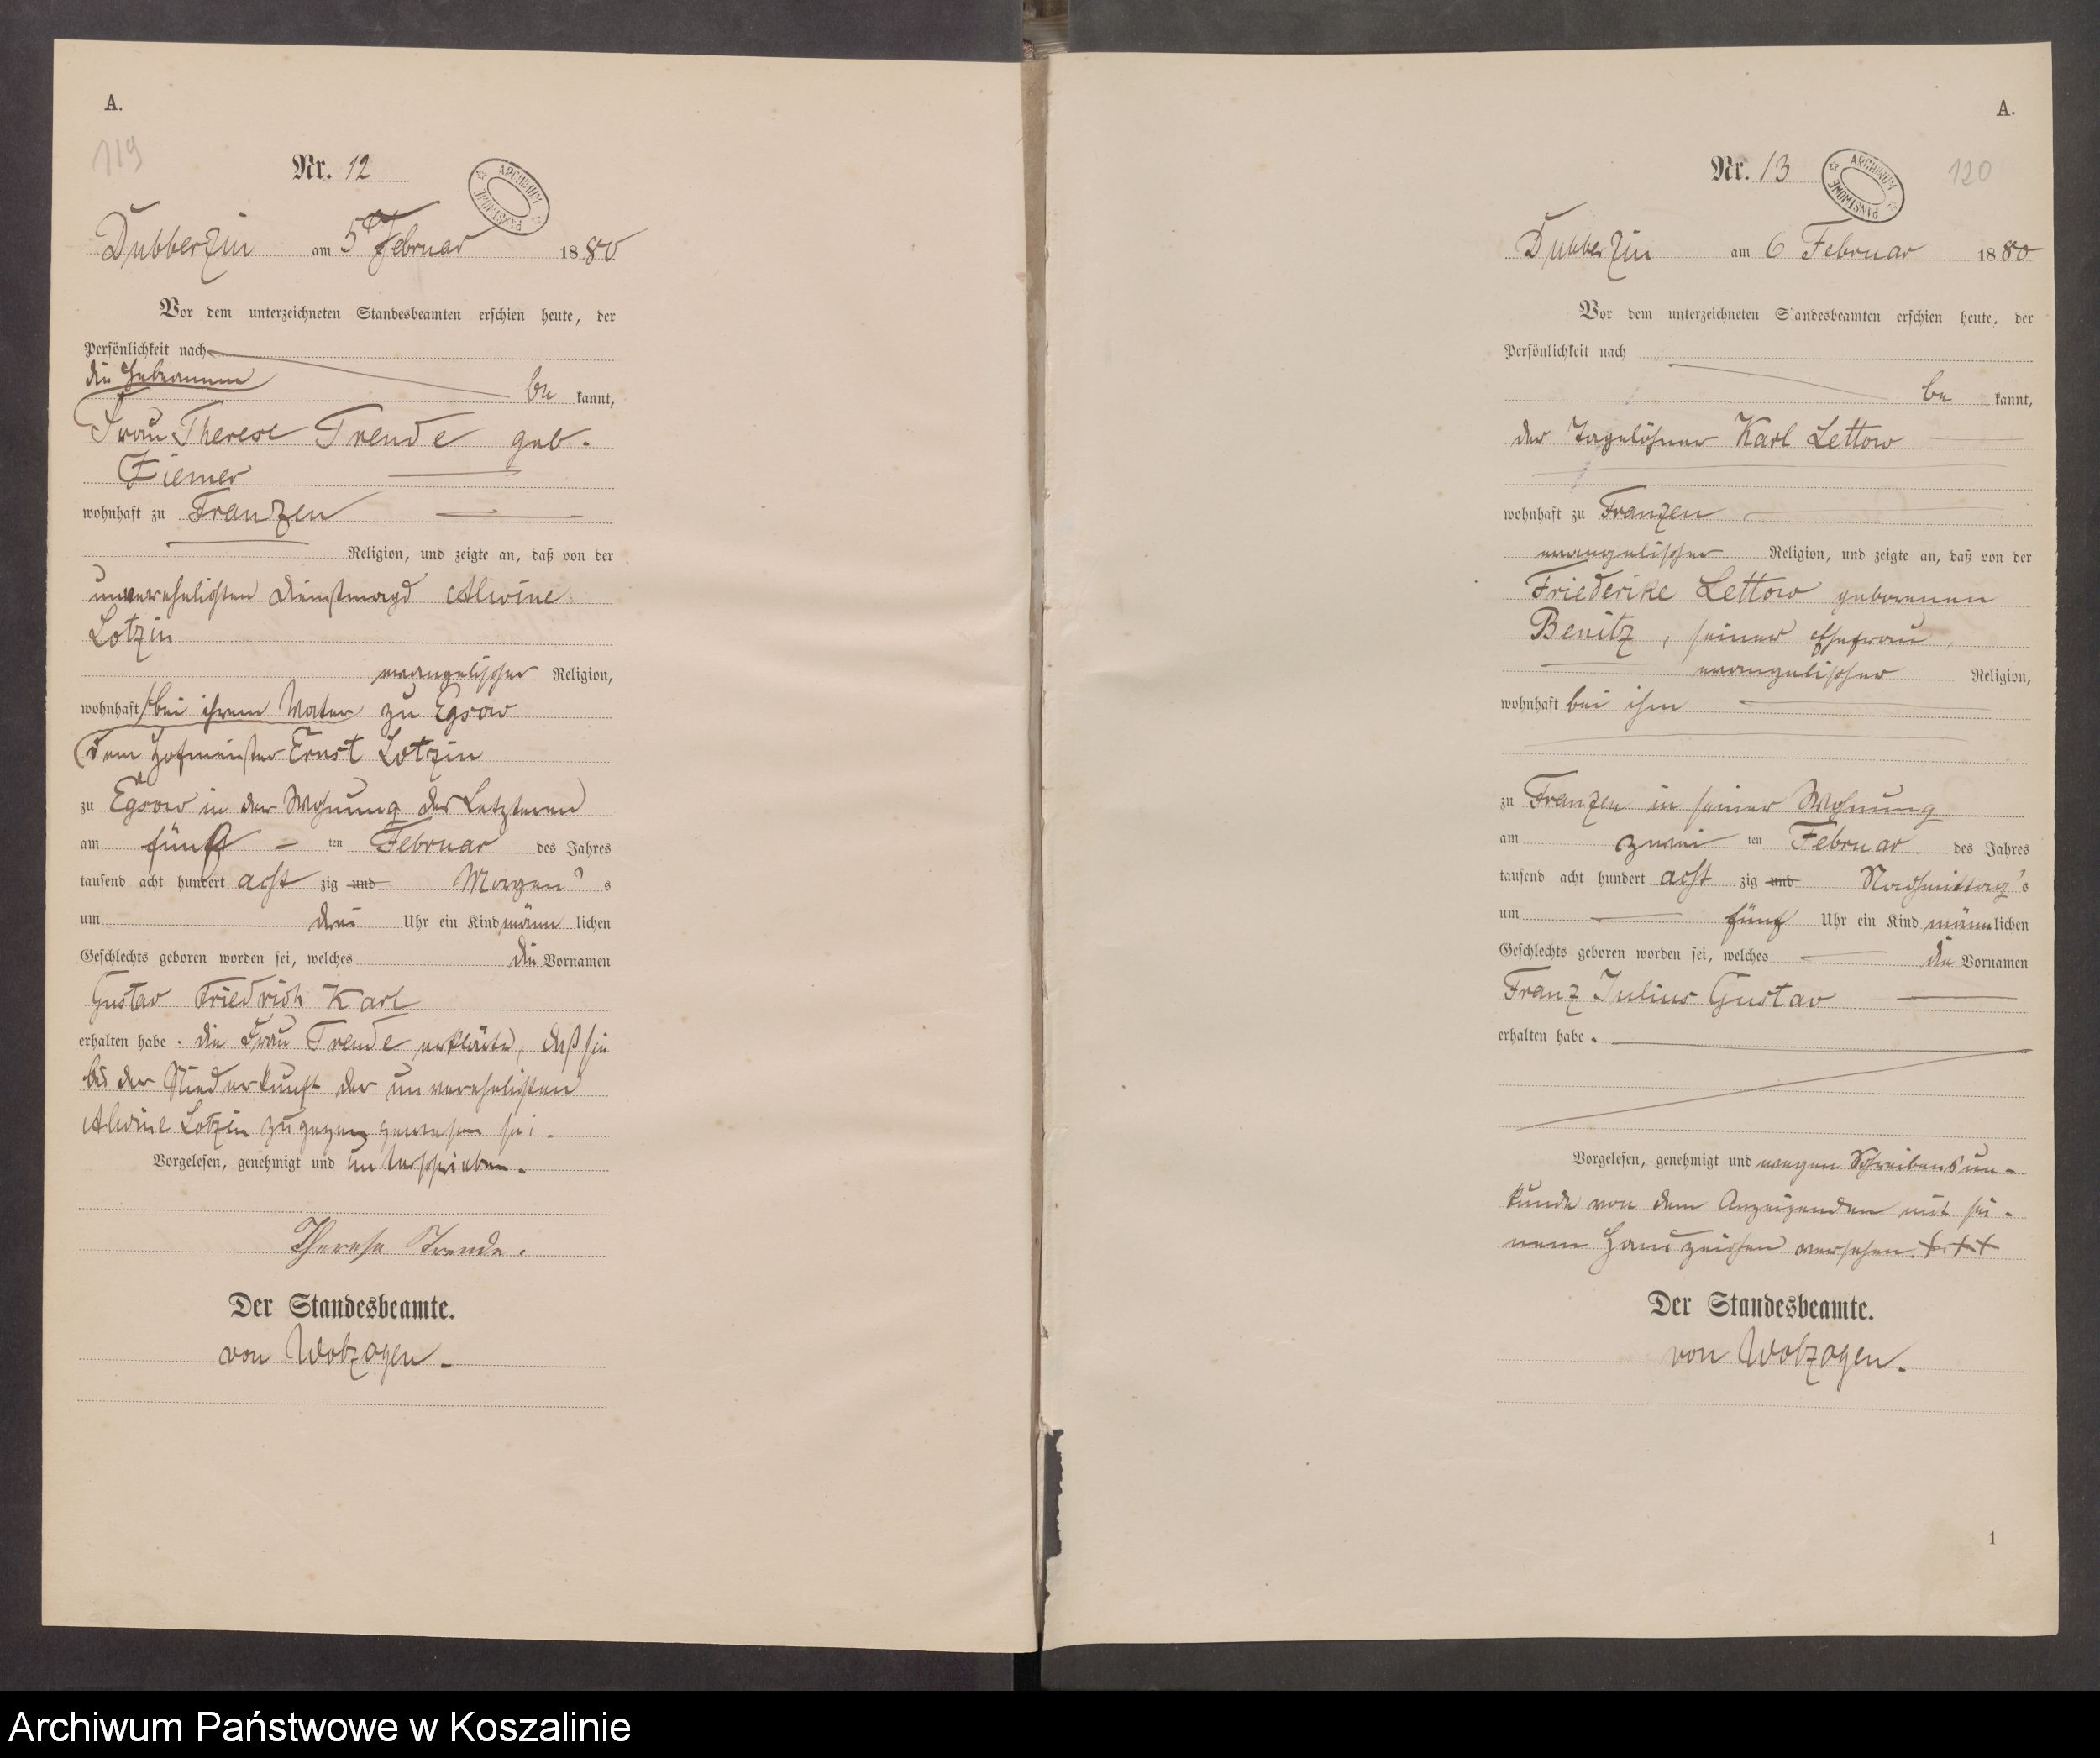 A.
119
Nr. 12
ARCHIWUM PAŃSTWOWE
Dubberzin am 5 Februar 1880
Vor dem unterzeichneten Standesbeamten erschien heute, der
Persönlichkeit nach
die Hebamme
be kannt,
Frau Therese Trende geb.
Ziemer
wohnhaft zu Franzen
Religion, und zeigte an, daß von der
unverehelichten Dienstmagd Alwine
Lotzin
evangelischer Religion,
wohnhaft bei ihrem Vater zu Egsow
dem Hofmeister Ernst Lotzin
zu Egsow in der Wohnung des Letzteren
am fünf ten Februar des Jahres
tausend acht hundert acht zig und Morgen s
um drei Uhr ein Kind männ lichen
Geschlechts geboren worden sei, welches die Vornamen
Gustav Friedrich Karl
erhalten habe. die Frau Trende erklärte, daß sie
bei der Niederkunft der unverehelichten
Alwine Lotzin zugegen gewesen sei.
Vorgelesen, genehmigt und unterschrieben.
Therese Trende.
Der Standesbeamte.
von Wolzogen.
A.
120
Nr. 13
ARCHIWUM PAŃSTWOWE
Dubberzin am 6 Februar 1880
Vor dem unterzeichneten Standesbeamten erschien heute, der
Persönlichkeit nach
be kannt,
der Tagelöhner Karl Lettow
wohnhaft zu Franzen
evangelischer Religion, und zeigte an, daß von der
Friederike Lettow geborenen
Benitz, seiner Ehefrau,
evangelischer Religion,
wohnhaft bei ihm
zu Franzen in seiner Wohnung
am zwei ten Februar des Jahres
tausend acht hundert acht zig und Nachmittag's
um fünf Uhr ein Kind männlichen
Geschlechts geboren worden sei, welches die Vornamen
Franz Julius Gustav
erhalten habe.
Vorgelesen, genehmigt und wegen Schreibensun-
kunde von dem Anzeigenden mit sei-
nem Handzeichen versehen. +++
Der Standesbeamte.
von Wolzogen.
1
Archiwum Państwowe w Koszalinie